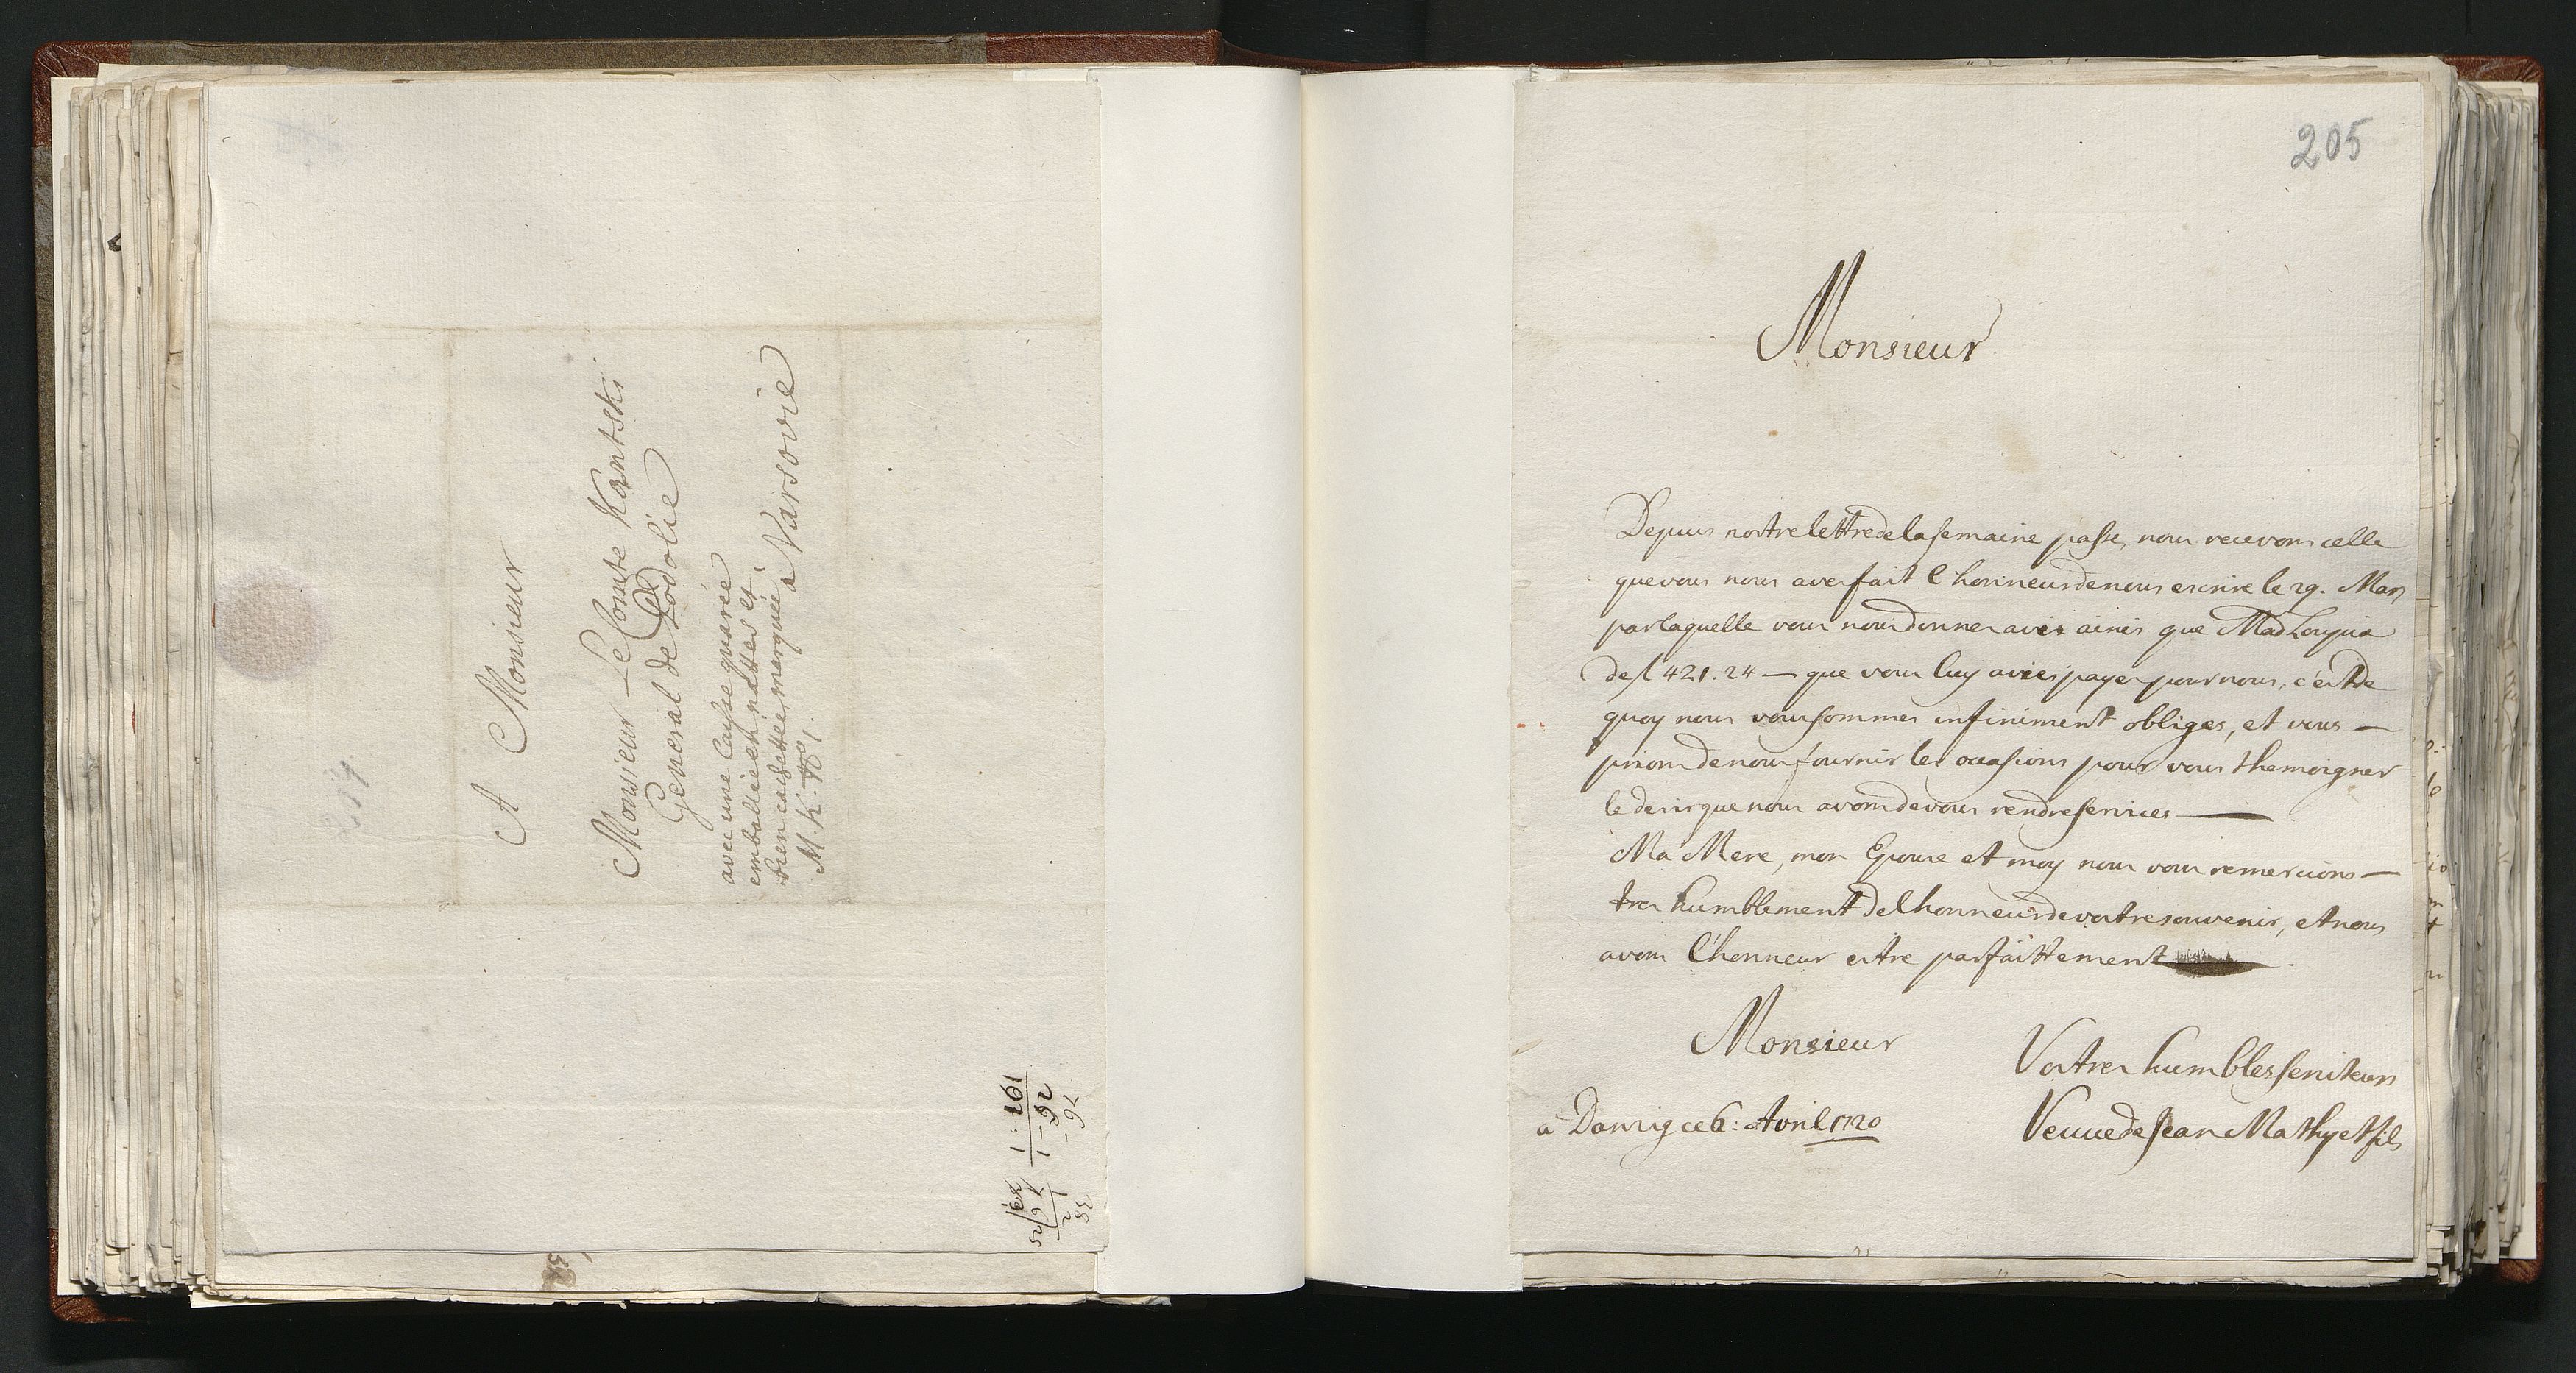 A Monsieur
Monsieur Le Comte Kontski
General de Podolie
avec une Caisse quarée
emballée en nattes et
bien casettée merquée
M. K. N° 1.
à Varsovie
205
Monsieur
Depuis nostre lettre de la semaine passe, nous recevons celle
que vous nous aves fait l'honneur de nous escrire le 29. Mars
par laquelle vous nous donnes avis ainsi que Mad
de f 421. 24 — que vous luy avies payer pour nous, c'est de
quoy nous vous sommes infiniment obliges, et vous —
prions de nous fournir les occasions pour vous themoigner
le desir que nous avons de vous rendre services —
Ma Mere, mon Epouse et moy nous vous remercions —
tres humblement de l'honneur de vostre souvenir, et nous
avons l'honneur estre parfaittement
Monsieur
Vostres humbles serviteurs
à Danzig ce 6: Avril 1720
Veuve de Jean Mathy et fils